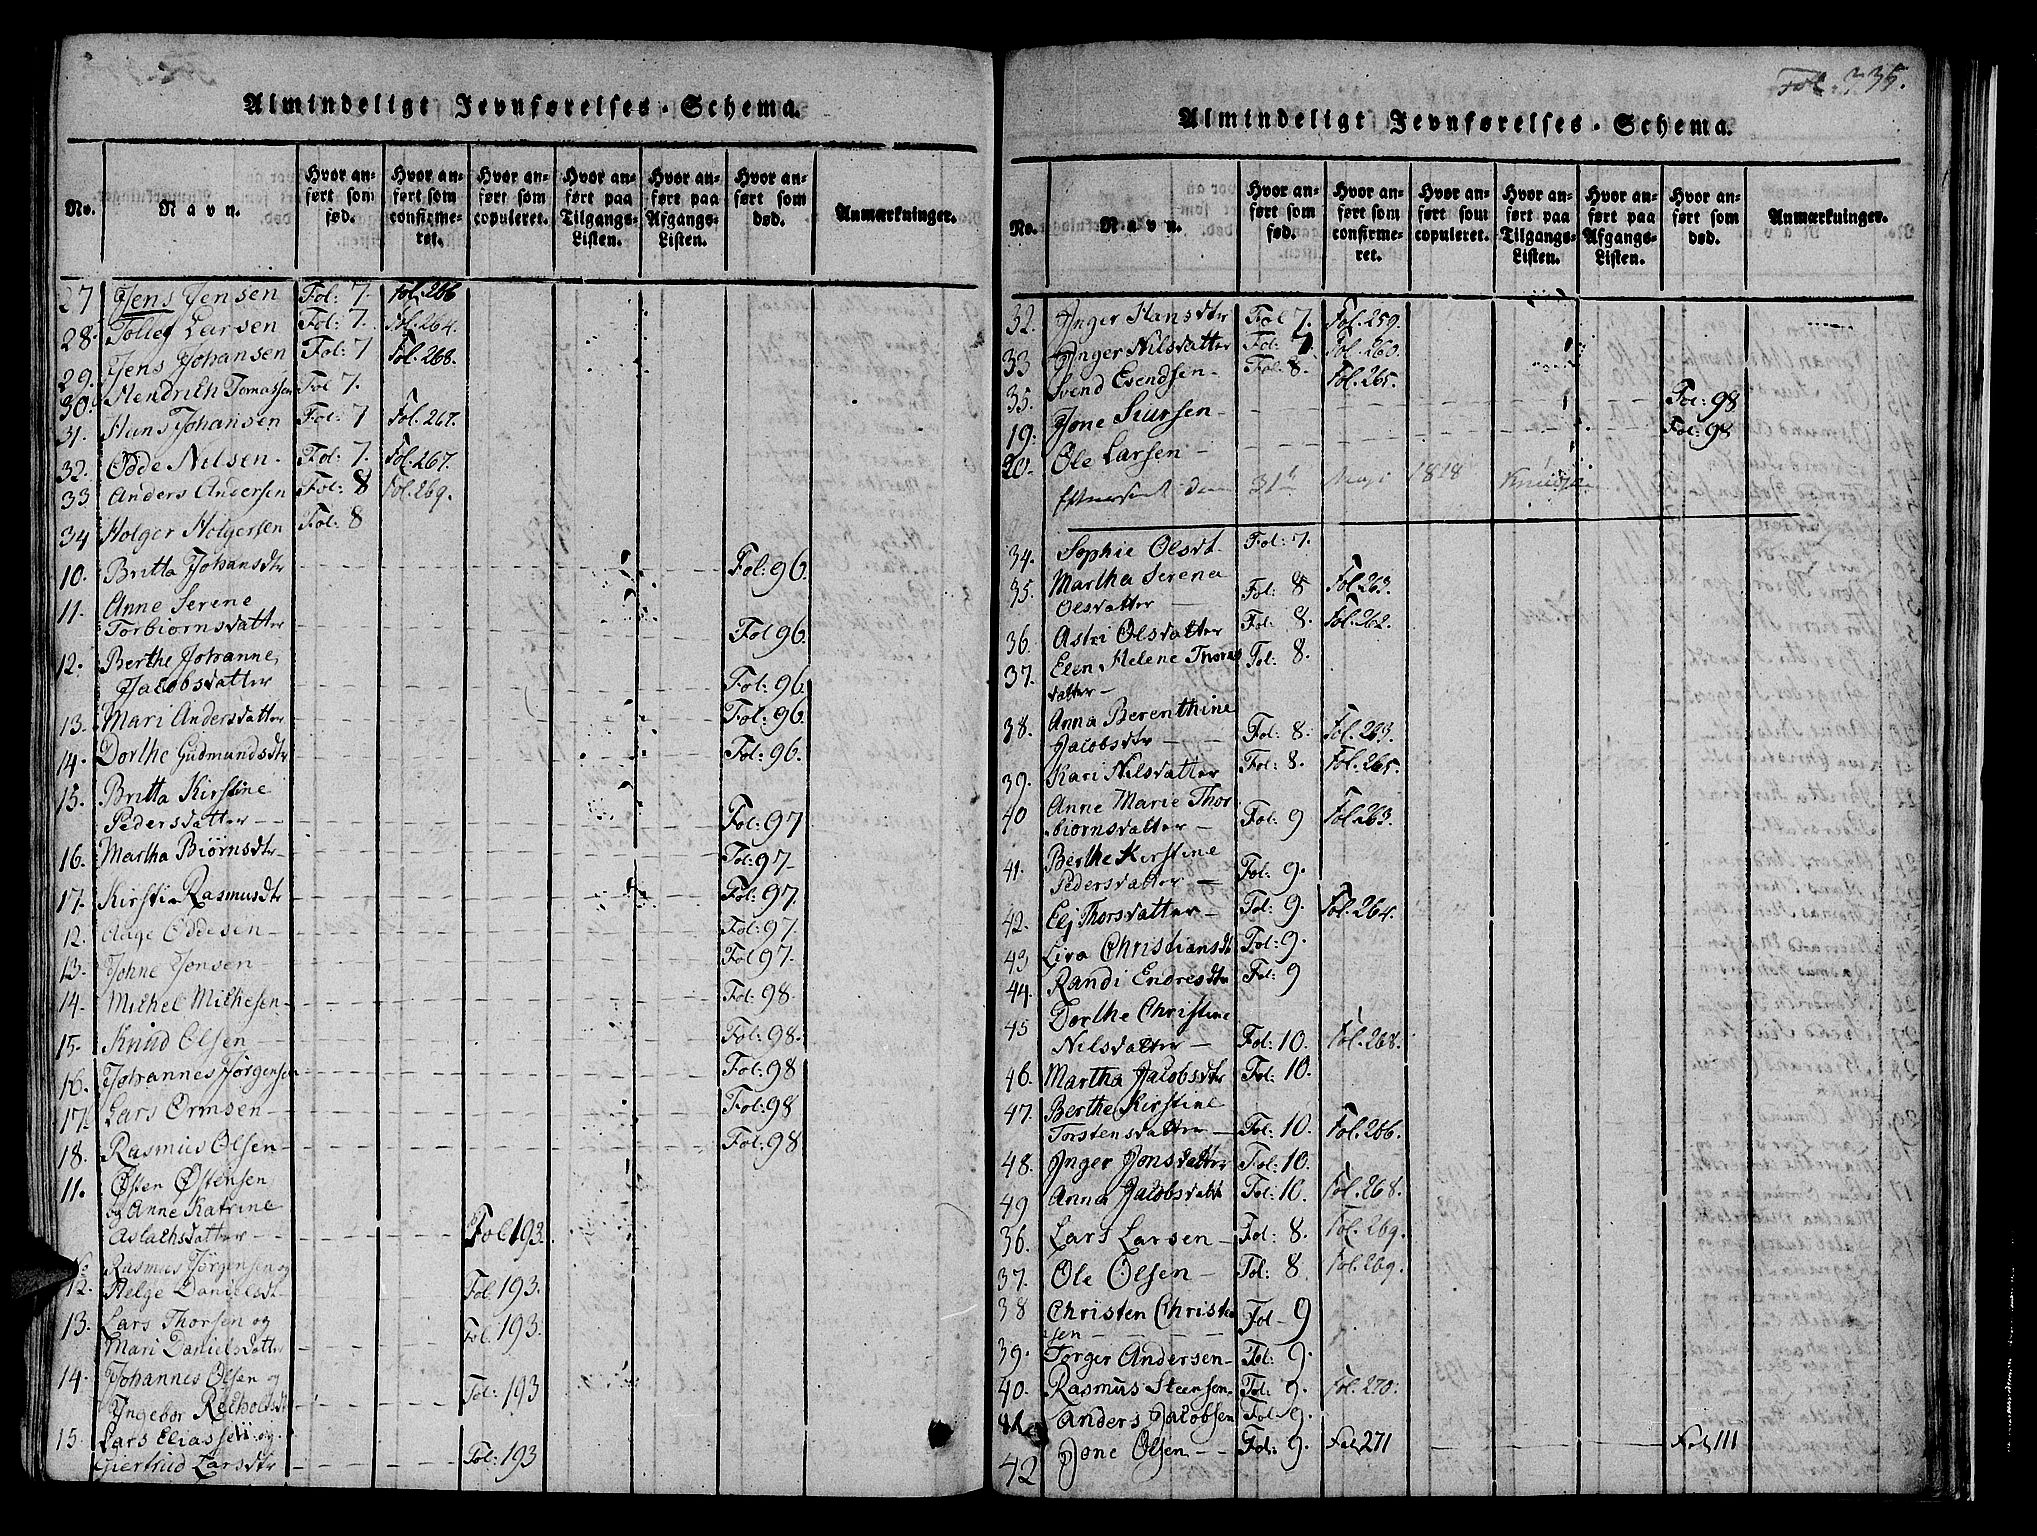 Almindeligt Jevnførelses-Schema.
No. Navn. Hvor anført som fød. Hvor anført som confirmeret. Hvor anført som copuleret. Hvor anført paa Tilgangs-Listen. Hvor anført paa Afgangs-Listen. Hvor anført som død. Anmærkninger.
27 Jens Jensen Fol: 7. Fol. 266
28. Tollef Larsen Fol: 7. Fol. 264.
29. Jens Johansen Fol: 7 Fol. 268.
30. Hendrich Tomassen Fol 7.
31. Hans Johansen Fol: 7 Fol. 267.
32. Odde Nilsen Fol: 7. Fol. 267.
33 Anders Andersen Fol: 8 Fol. 269.
34 Holger Holgersen Fol: 8
10. Britta Johansdtr Fol: 96.
11. Anne Serene
Torbiornsdatter Fol 96.
12. Berthe Johanne
Jacobsdatter Fol: 96
13. Mari Andersdatter Fol: 96.
14. Dorthe Gudmundsdtr Fol: 96.
15. Britta Kirstine
Pedersdatter Fol: 97
16. Martha Biørnsdtr Fol: 97
17. Kirsti Rasmusdtr Fol: 97.
12. Aage Oddesen Fol: 97.
13. Johne Jonsen Fol 97.
14. Michel Michesen Fol: 98.
15. Knud Olsen Fol: 98.
16. Johannes Jørgensen Fol: 98
17. Lars Ormsen Fol: 98
18. Rasmus Olsen Fol: 98
11. Østen Østensen
og Anne Katrine
Aslachsdatter Fol 193.
No Rasmus Jørgensen og
12. Helge Danielsdt Fol 193.
13. Lars Thorsen og
Mari Danielsdatter Fol. 193.
14. Johannes Olsen og
Ingebor Reiholdsdt Fol: 193
15. Lars Eliassen og
Giertrud Larsdtr Fol: 193
Fol. 335.
Almindeligt Jevnførelses-Schema.
No. Navn. Hvor anført som fød. Hvor anført som confirmeret. Hvor anført som copuleret. Hvor anført paa Tilgangs-Listen. Hvor anført paa Afgangs-Listen. Hvor anført som død. Anmærkninger.
32. Inger Hansdtr Fol 7. Fol. 259.
33 Inger Nilsdatter Fol: 7 Fol. 260.
35. Svend Evendsen Fol: 8. Fol. 265.
19. Jone Siursen Fol: 98
20. Ole Larsen Fol: 98
31t Maji 1818
34. Sophie Olsdt. Fol: 7.
35. Martha Serena
Olsdatter Fol: 8 Fol. 263.
36. Astri Olsdatter Fol: 8. Fol. 262.
37. Elen Helene Thoras
datter Fol: 8.
38. Anna Berenthine
Jacobsdtr Fol: 8. Fol. 263.
39. Kari Nilsdatter Fol: 8. Fol. 265.
40 Anne Marie Thor
biornsdatter Fol: 9 Fol. 263.
41. Berthe Kirstine
Pedersdatter Fol: 9.
42. Elj Thorsdatter Fol: 9. Fol. 264.
43 Liva Christiansdt Fol: 9.
44. Randi Endresdtr Fol: 9
45 Dorthe Christine
Nilsdatter Fol: 10. Fol. 268.
46. Martha Jacobsdtr Fol: 10.
47. Berthe Kirstine
Torstensdatter Fol: 10. Fol. 266.
48. Inger Jonsdatter Fol: 10.
49 Anna Jacobsdatt Fol: 10. Fol. 268.
36. Lars Larsen Fol: 8. Fol. 269.
37. Ole Olsen Fol: 8. Fol. 269.
38 Christen Christen
sen Fol 9
39. Torger Andersen Fol: 9.
40. Rasmus Steensen Fol: 9. Fol. 270.
41. Anders Jacobsen Fol: 9.
42 Jone Olsen Fol: 9. Fol 271 Fol 111